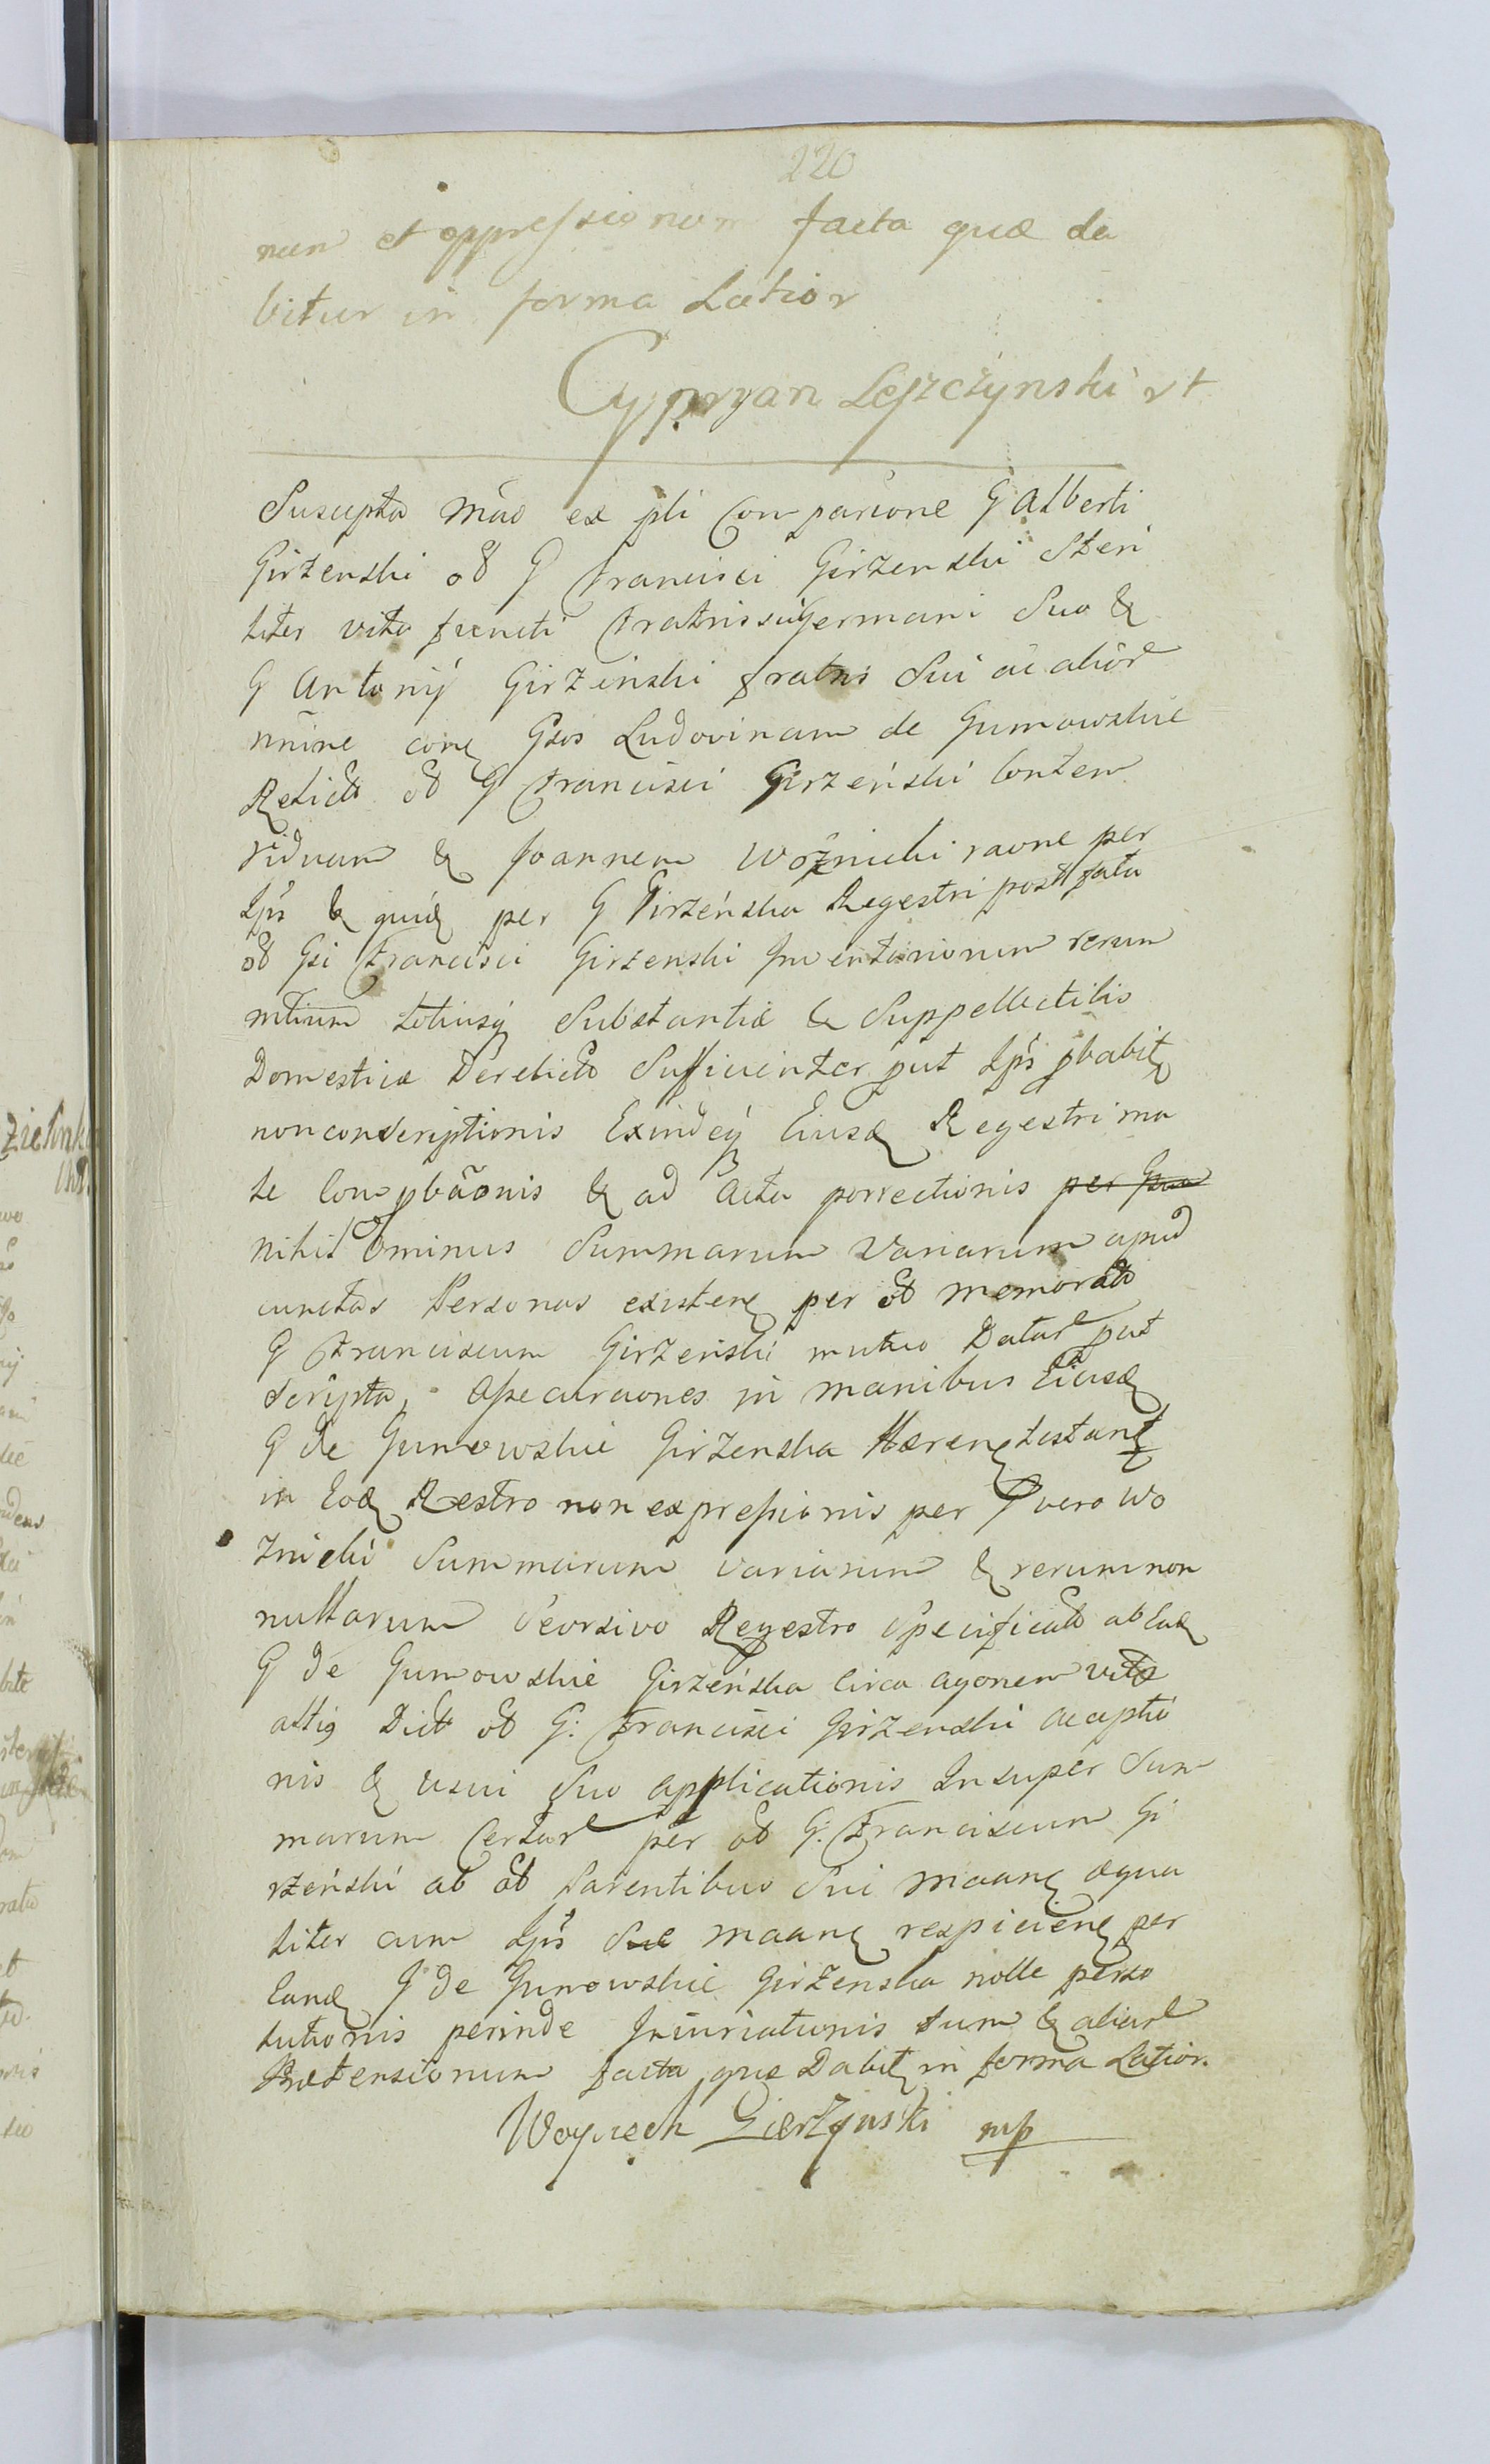 220
num et oppressionum facta quæ da
bitur in forma Latior
Cypryan Leszczynski
Suscepta Mão ex pli Comparione G Alberti
Girzenski ob G Francisci Girzenski Steri
liter vita functi Fratris sui Germani Suo &
G Antonij Girzinski fratris Sui ac alior
nñine conq Gsos Ludovinam de Gumowskie
Relict ob G Francisci Girzeński Consten
viduam & Joannem Woźnicki raone per
Lps & quidq per G Girzeńska Regestri post fata
ob Gsi Francisci Girzenski Inventarionum rerum
mtium totiusq Substantiæ & Suppellectilis
Domesticæ Derelicto Sufficienter put Lps pbabitq
nonconscriptionis Exindeq Eiusdq Regestri ma
le Compbãonis & ad Acta porrectionis per
nihil ominus Summarum Variarum apud
cunctas Personas existenq per ob memorato
G Franciscum Girzeński mutuo Datar put
Scripta, Assecuraones in manibus Eiusdq
G de Gumowskie Girzenska Hærenq testantq
in Eodq Restro non expressionis per G vero Wo
znicki Summarum variarum & rerum non
nullarum Seorsivo Regestro Specificato ab Eadq
G de Gumowskie Girzeńska circa agonem vitæ
altiq Dict ob G: Francisci Girzenski acceptio
nis & usui Suo applicationis Insuper Sum
marum Certar per ob G: Franciscum Gi
rzeński ab ob Parentibus Sui Maanq æqua
liter cum Lps Sue maanq respicienq per
Eandq G de Gumowskie Girzenska nolle perso
lutionis perinde Iniuriationis Sum & aliar
Prætensionum facta quæ Dabitq in forma Latior.
Woyciech Gierżynski mp